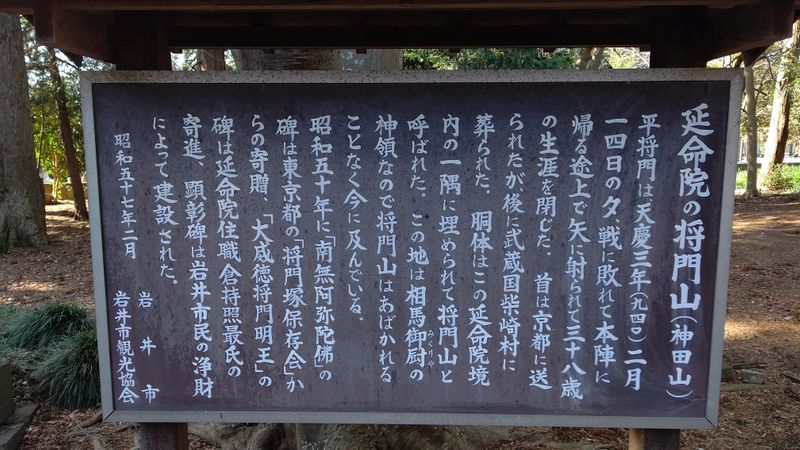 延命院の将門山（神田山）
平将門は天慶三年（九四〇）二月
一四日の夕戦に敗れて本陣に
帰る途上で矢に射られて三十八歳
の生涯を閉じた。首は京都に送
られたが、後に武蔵国柴崎村に
葬られた。胴体はこの延命院境
内の一隅に埋められて将門山と
呼ばれた。この地は相馬御厨の
みくりや
神領なので将門山はあばかれる
ことなく今に及んでいる。
昭和五十年に「南無阿弥陀佛」の
碑は東京都の「将門塚保存会」か
らの寄贈、「大威徳将門明王」の
碑は延命院住職倉持照最氏の
寄進、顕彰碑は岩井市民の浄財
によって建設された。
昭和五十七年二月
岩井市
岩井市観光協会